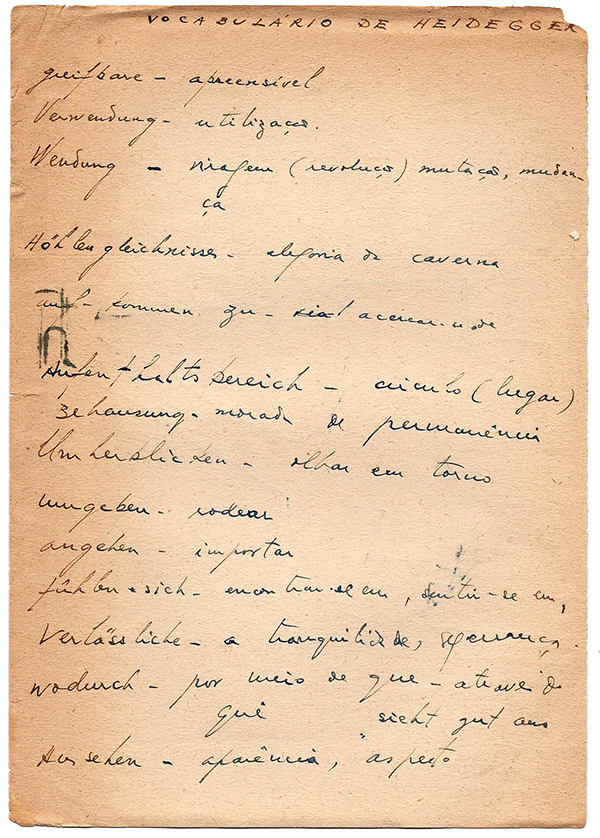 VOCABULÁRIO DE HEIDEGGER
greifbare - apreensível
Verwendung - utilização.
Wendung - viragem (revolução) mutação, mudan-
ça
Höhlengleichnisses - alegoria da caverna
auf - kommen zu -
Aufenthaltsbereich - círculo (lugar)
Behausung - morada de permanência
Umherblicken - olhar em torno
umgeben - rodear
angehen - importar
fühlen sich - encontrar-se em, sentir-se em,
Verlässliche - a tranquilidade, segurança.
wodurch - por meio de que - através do
quê sieht gut aus
Aussehen - aparência, "aspecto